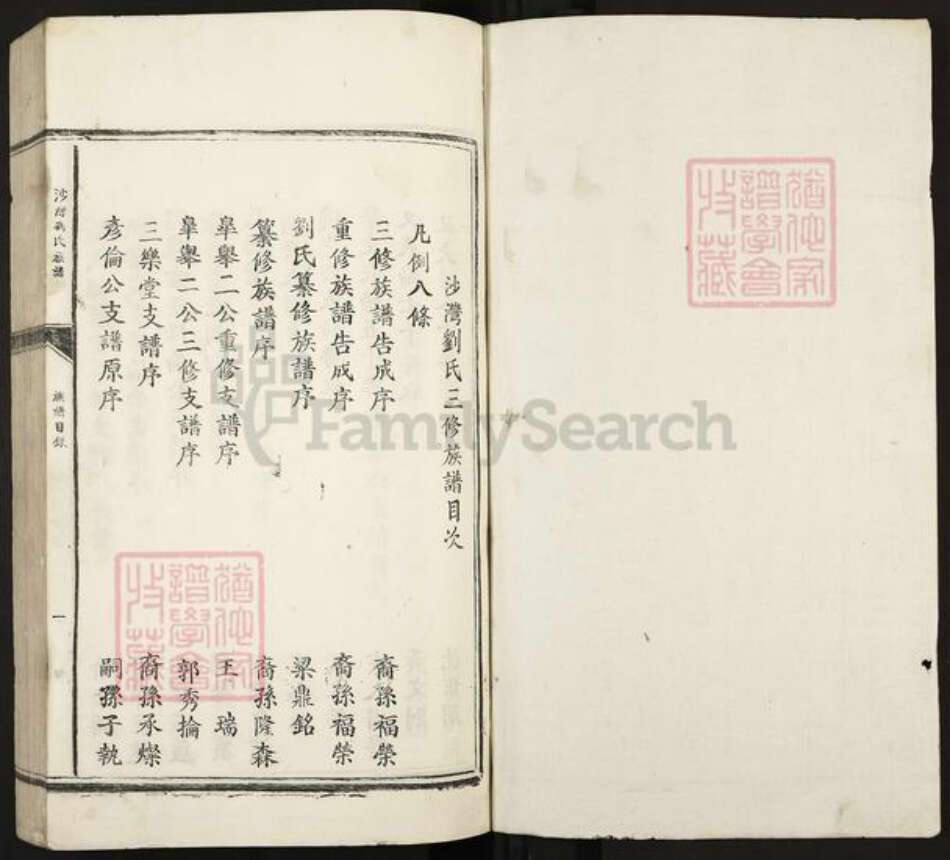 沙灣劉氏三修族譜目次
凡例八條
三修族譜告成序 裔孫福榮
重修族譜告成序 裔孫福榮
劉氏纂修族譜序 梁鼎銘
纂修族譜序 裔孫隆森
皐舉二公重修支譜序 王瑞
皐舉二公三修支譜序 郭秀掄
三樂堂支譜序 裔孫承燦
彥倫公支譜原序 嗣孫子執
沙灣劉氏族譜 族譜目錄 一
猶他家譜學會收藏
猶他家譜學會收藏
FamilySearch